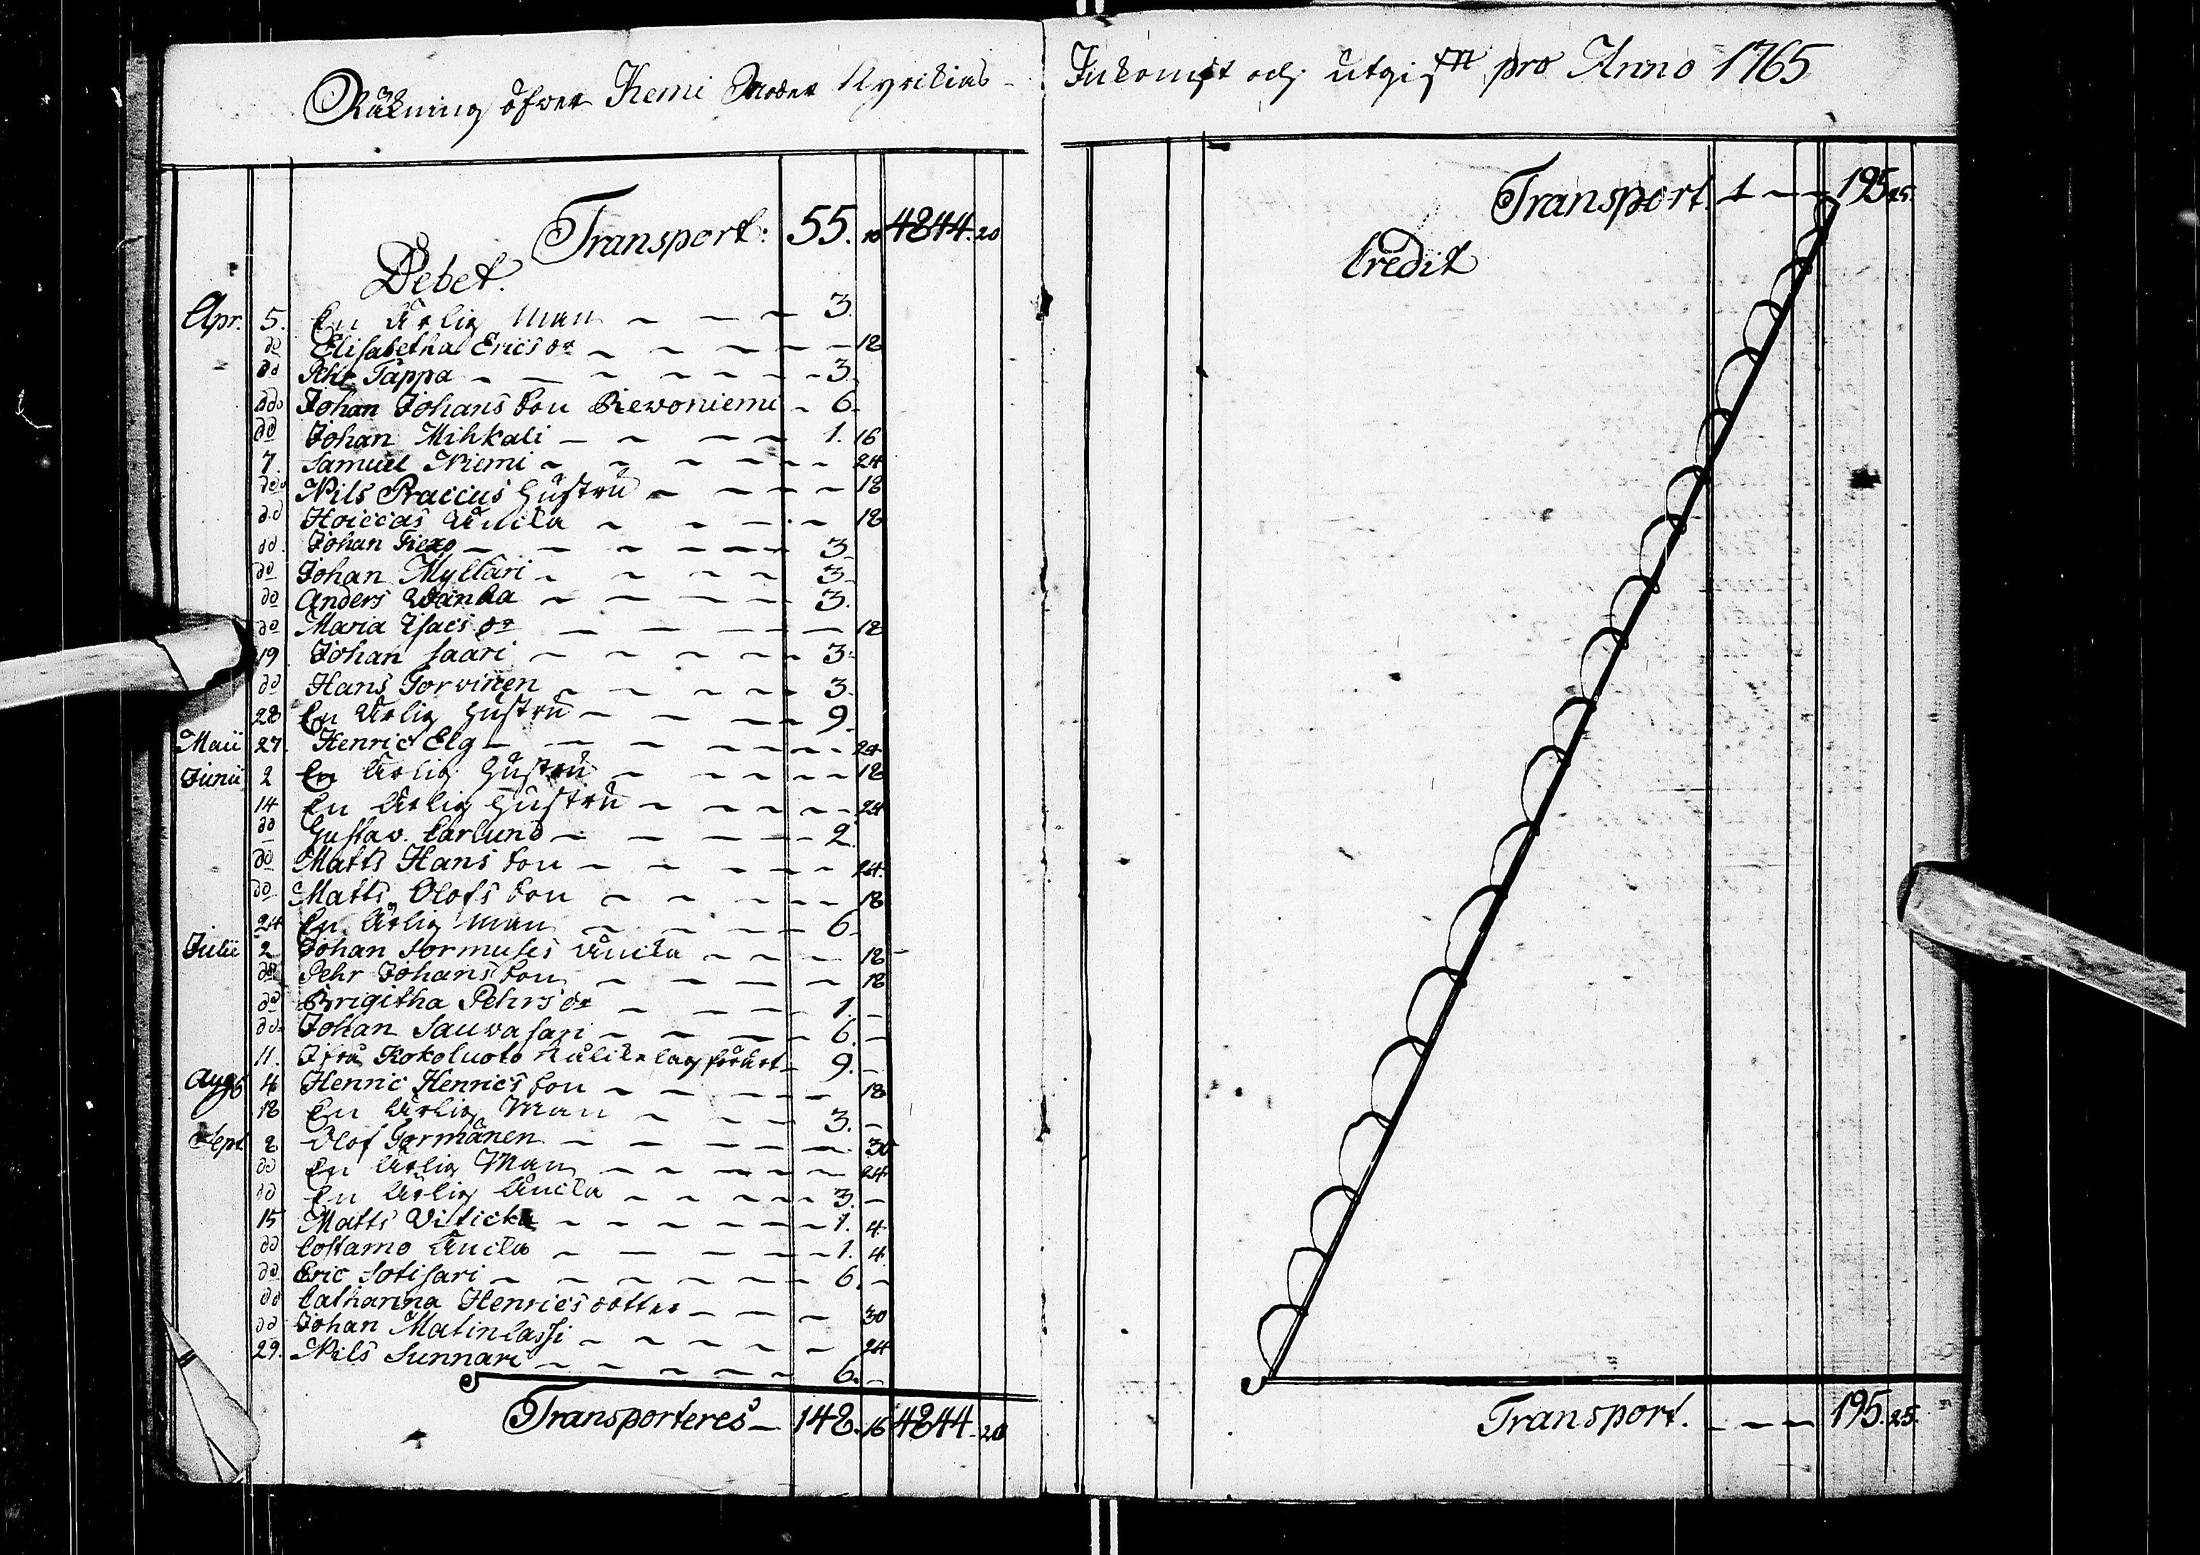 Räkning öfwer Kemi Moder Kyrckias
Inkomst och utgifter pro Anno 1765
Transport: 55. 10 4844. 20
Debet.
Apr. 5. En ärlig Man 3.
do Elisabetha Ericsdr 18
do Pehr Tappa 3.
do Johan Johans Son Rewoniemi 6.
do Johan Mihkali 1. 16
7. Samuel Niemi 24
do Nils Praccus Hustru 18
do Hoiccas Äncka 18
do Johan 3
do Johan Myllari 3
do Anders Wanha 3.
do Maria Isacs dr 18
19 Johan Saari 3.
do Hans Torvinen 3.
28 En Ärlig Hustru 9.
Maii 27. Henric Elg 24
Junii 2 En Ärlig Hustru 18
14 En Ärlig Hustru 24
do Gustav Carlund 2.
do Matts Hans Son 24
do Matts Olofs Son 18
24 En Ärlig Man 6.
Julii 2 Johan Sormules Äncka 18
do Pehr Johans Son 18
do Brigitha Pehrs dr 1.
do Johan Sauwasari 6.
11. Ifrå Kokoluoto 9.
Aug 4 Henric Henrics Son 18
18 En Ärlig Man 3.
Sept 8 Olof Germänen 30
do En Ärlig Man 24
do En Ärlig Äncka 3.
15 Matts 1. 4
do Äncka 1. 4
do Eric Sotisari 6.
do Catharina Henrics dotter 30
do Johan Matinlassi 24
29. Nils Sunnari 6.
Transporteres 148. 16 4844. 20
Transport 195. 25.
Credit
Transport. 195. 25.